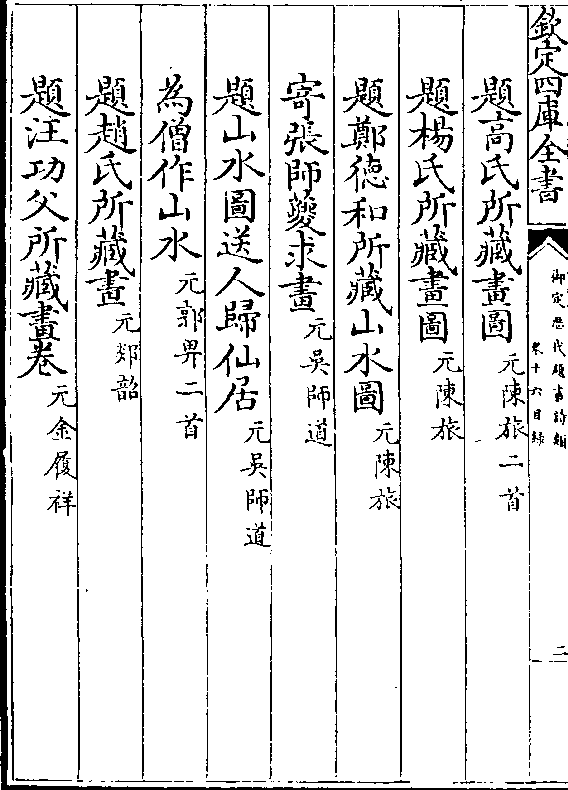 欽定四庫全書
御定歷代題畫詩類
卷十六目錄
二
題高氏所藏畫圖元陳旅二首
題楊氏所藏畫圖元陳旅
題鄭徳和所藏山水圖元陳旅
寄張師夔求畫元吳師道
題山水圖送人歸仙居元吳師道
為僧作山水元郭畀二首
題趙氏所藏畫元郯韶
題汪功父所藏畫卷元金履祥